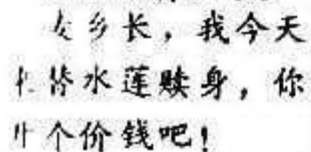 乡长，我今天
替水莲赎身，你
个价钱吧！